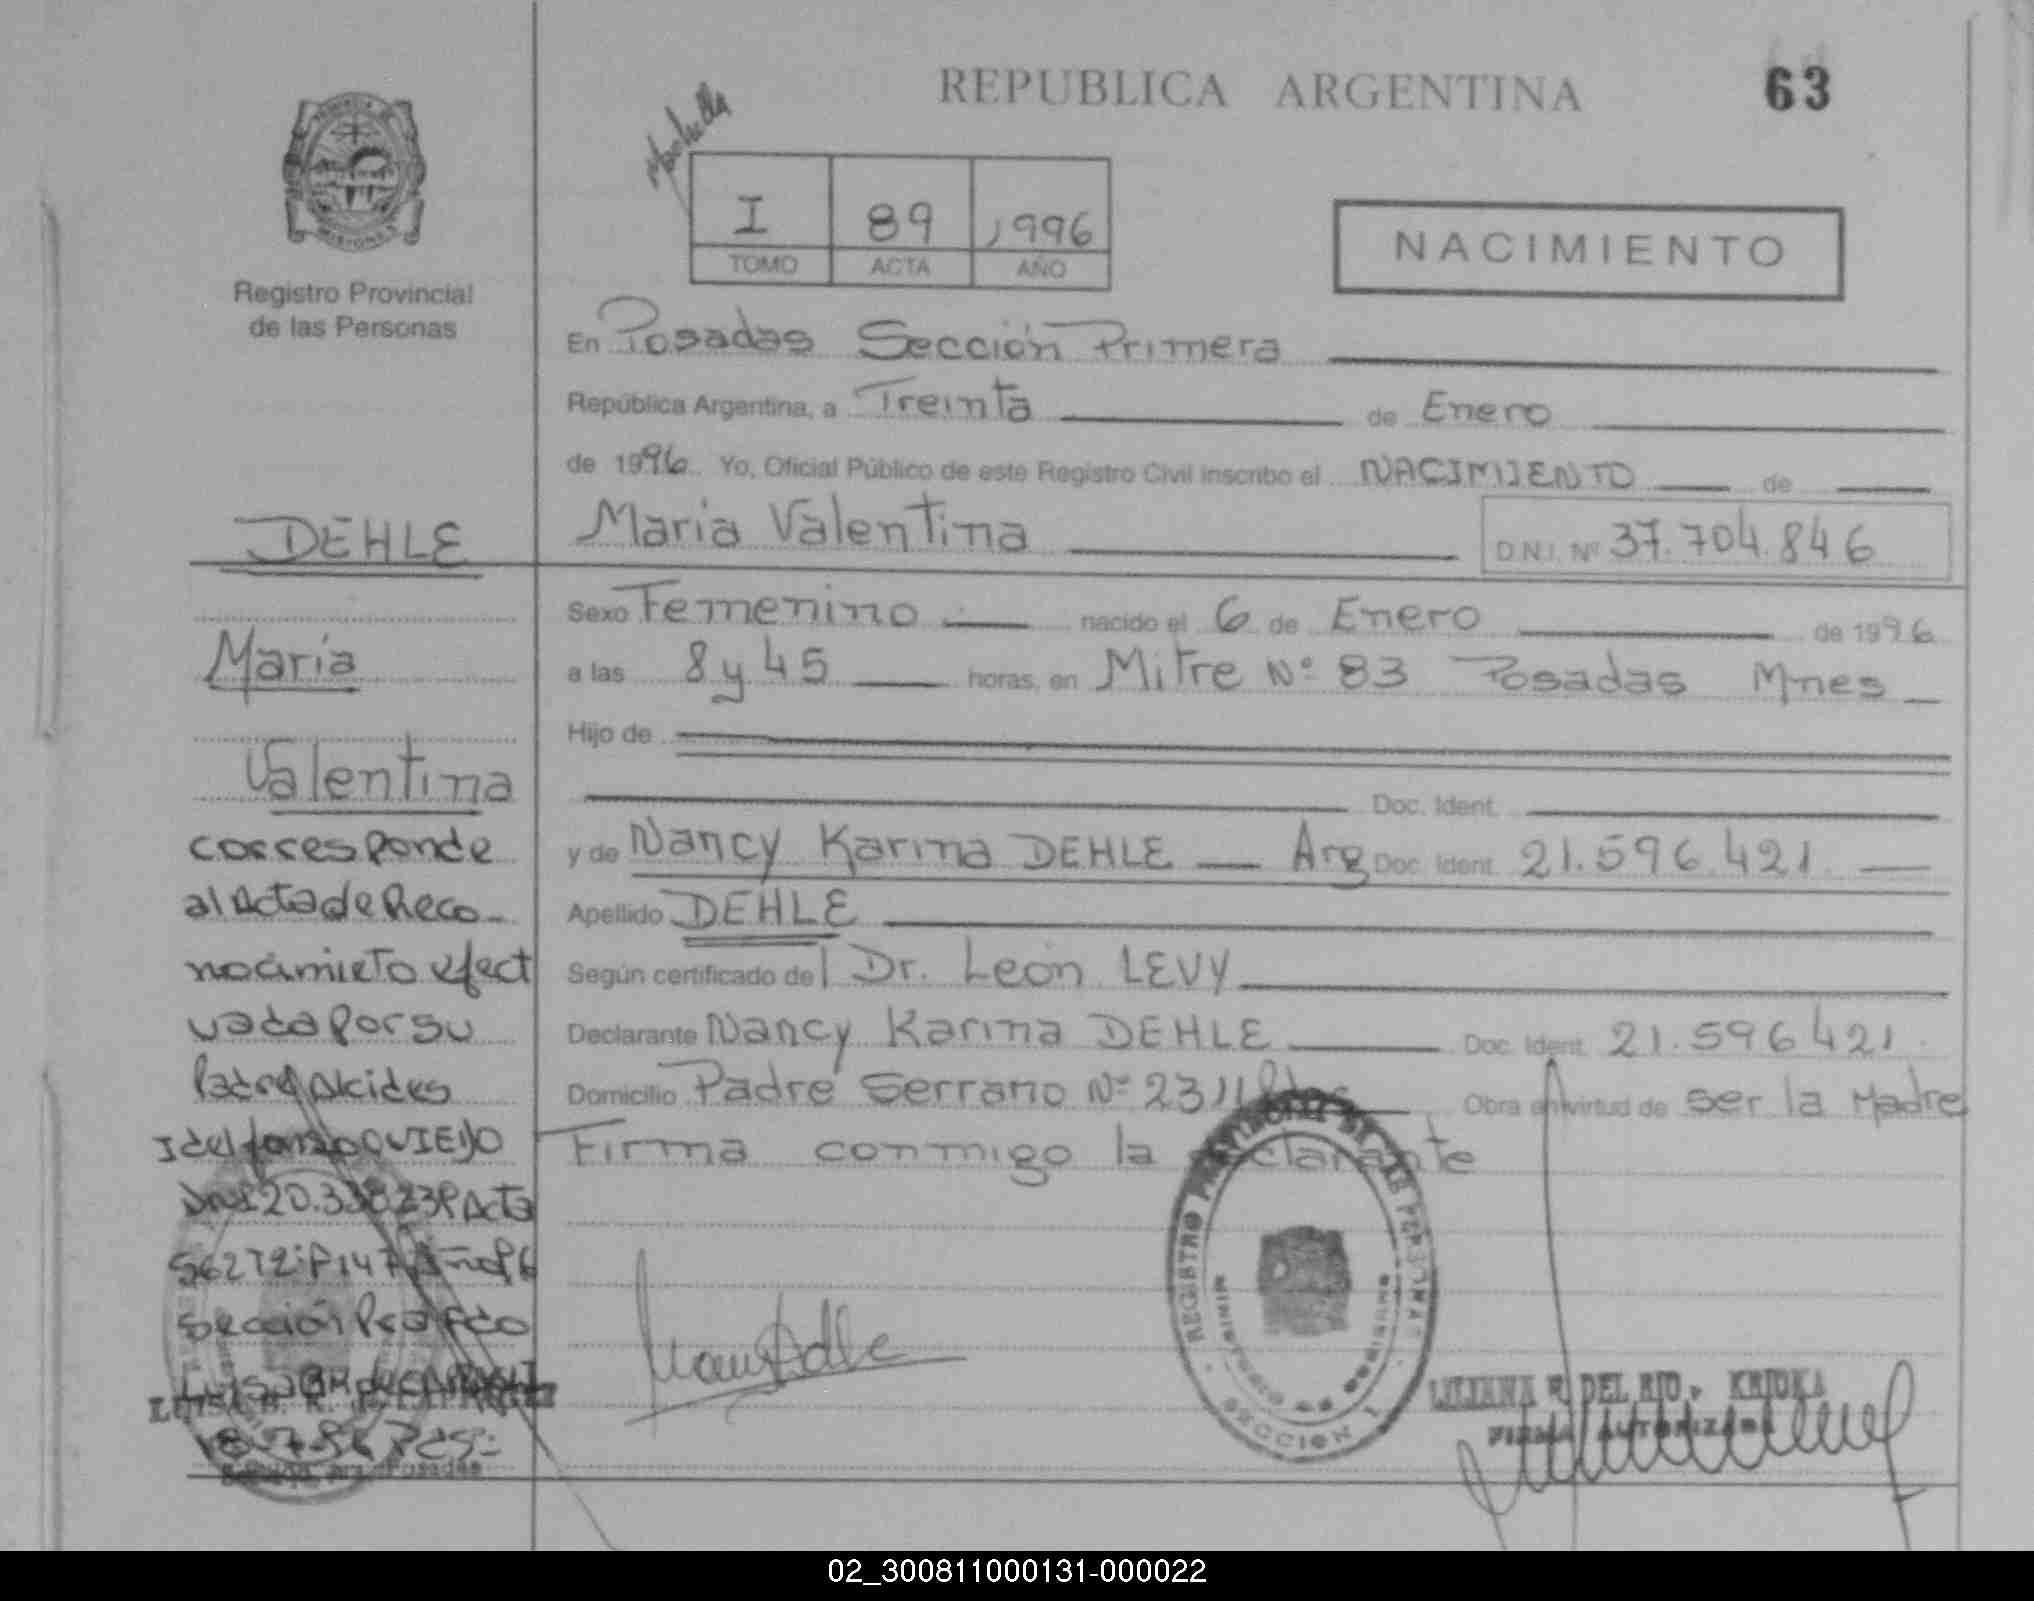 REPUBLICA ARGENTINA
63
I 89 1996
TOMO ACTA AÑO
NACIMIENTO
MISIONES
Registro Provincial
de las Personas
En Posadas Sección Primera
República Argentina, a Treinta de Enero
de 1996 Yo, Oficial Público de este Registro Civil inscribo el NACIMIENTO de
Maria Valentina D.N.I. Nº 37.704.846
Sexo Femenino nacido el 6 de Enero de 1996
a las 8 y 45 horas, en Mitre Nº 83 Posadas Mnes
Hijo de
Doc. Ident.
y de Nancy Karina DEHLE Arg Doc. Ident. 21.596.421
Apellido DEHLE
Según certificado del Dr. León LEVY
Declarante Nancy Karina DEHLE Doc. Ident. 21.596421
Domicilio Padre Serrano Nº 2311 Obra en virtud de ser la Madre
Firma conmigo la declarante
DEHLE
Maria
Valentina
corresponde
al Acta de Reco
nocimieto efect
uada por su
Padre Alcides
Idelfonso OVIEDO
Acta
Sección
REGISTRO PROVINCIAL DE LAS PERSONAS
MINISTERIO DE GOBIERNO
SECCION 1
LILIANA R. DEL RIO
FIRMA AUTORIZADA
Posadas
02_300811000131-000022